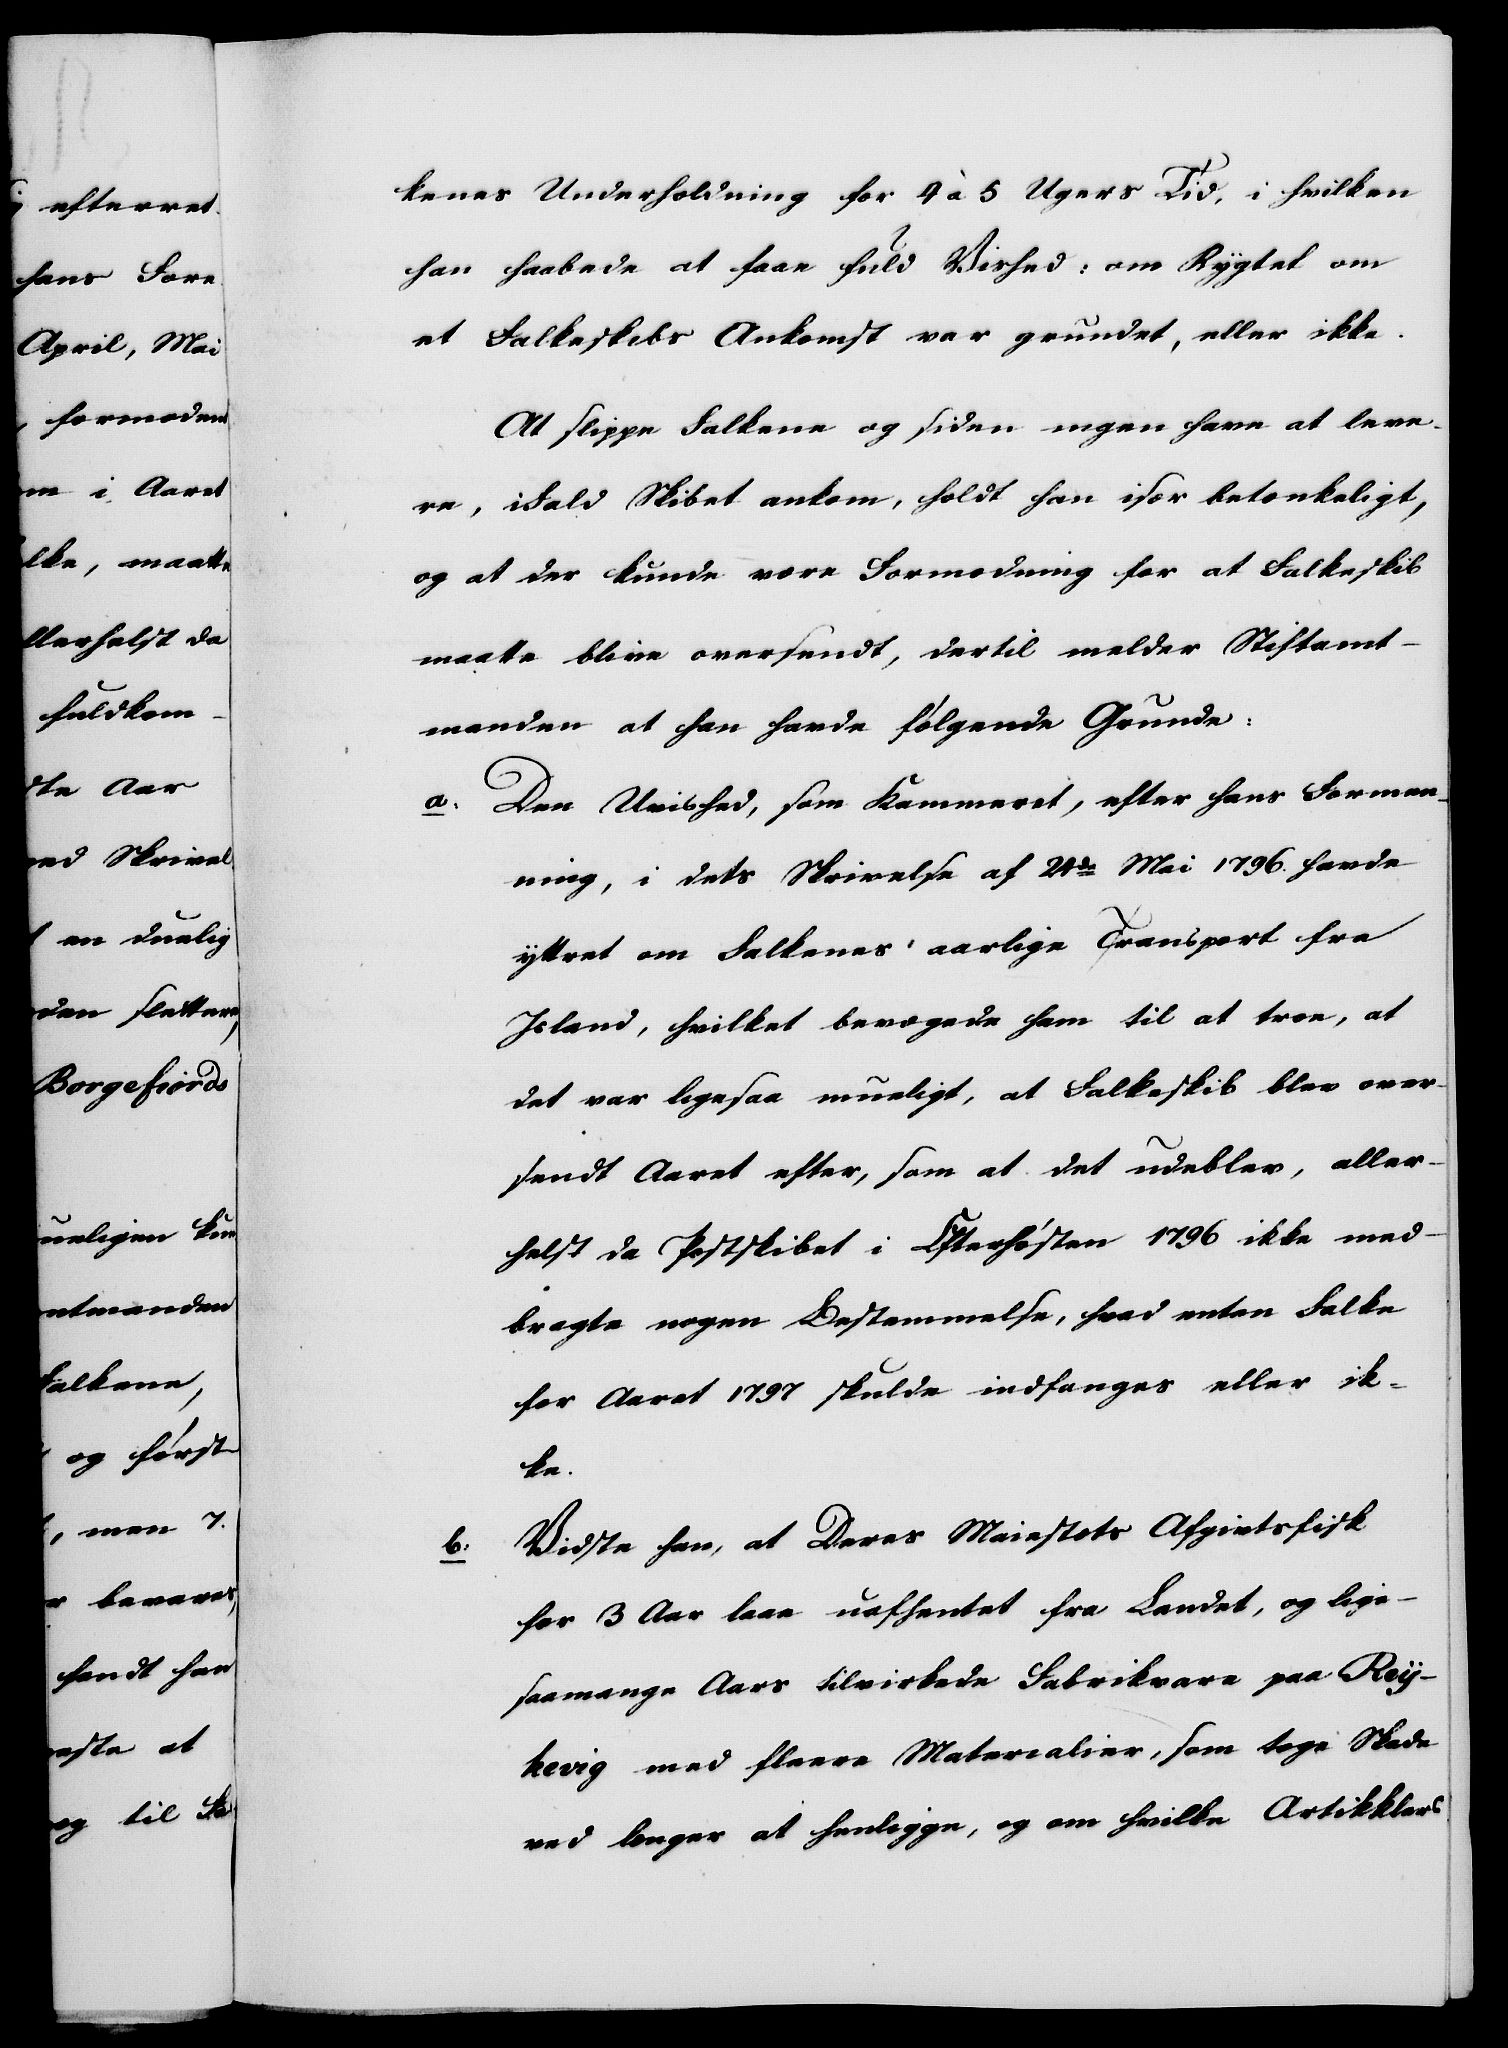 efterret
hans Fore
April, Mai
formoden
i Aaret
lke, maatte
llerhelst da
fuldkom-
Aar
Skrivel
en duelig
slettere,
Borgefiords
ueligen kun
ntmanden
Falkene,
og først
, men 7.
bevares,
fandt han
at
og til
kenes Underholdning for 4 à 5 Ugers Tid, i hvilken
han haabede at faae fuld Vished: om Rygtet om
et Falkeskibs Ankomst var grundet, eller ikke.
At slippe Falkene og siden ingen have at leve-
re, i Fald Skibet ankom, holdt han især betænkeligt,
og at der kunde være Formodning for at Falkeskib
maatte blive oversendt, dertil melder Stiftamt-
manden at han havde følgende Grunde:
a. Den Uvished, som Kammeret, efter hans Formee-
ning, i dets Skrivelse af 24de Mai 1796. havde
yttret om Falkenes aarlige Transport fra
Island, hvilket bevægede ham til at troe, at
det var ligesaa mueligt, at Falkeskib blev over-
sendt Aaret efter, som at det udeblev, aller-
helst da Postskibet i Efterhøsten 1796 ikke med-
bragte nogen Bestemmelse, hvad enten Falke
for Aaret 1797 skulde indfanges eller ik-
ke.
b. Vidste han, at Deres Maiestæts Afgiftsfisk
for 3 Aar laae uafhentet fra Landet, og lige-
saamange Aars tilvirkede Fabrikvare paa Rey-
kevig med fleere Materialier, som toge Skade
ved længer at henligge, og om hvilke Artikklers